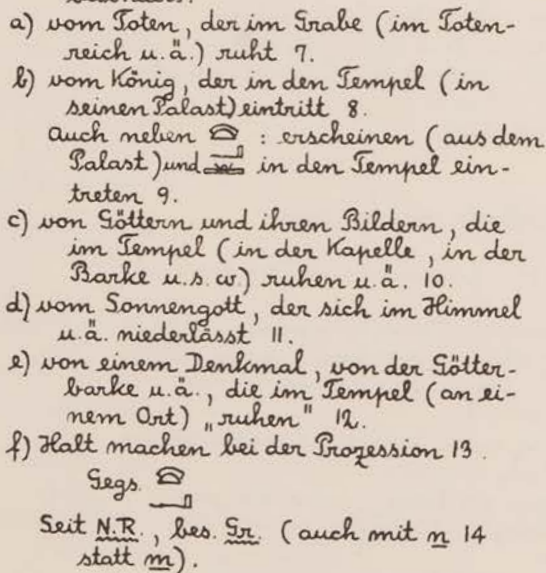 a) vom Toten, der im Grabe (im Toten-
reich u.ä.) ruht 7.
b) vom König, der in den Tempel (in
seinen Palast) eintritt 8.
auch neben 𓈍 : erscheinen (aus dem
Palast) und in den Tempel ein-
treten 9.
c) von Göttern und ihren Bildern, die
im Tempel (in der Kapelle, in der
Barke u.s.w.) ruhen u.ä. 10.
d) vom Sonnengott, der sich im Himmel
u.ä. niederlässt 11.
e) von einem Denkmal, von der Götter-
barke u.ä., die im Tempel (an ei-
nem Ort) „ruhen" 12.
f) Halt machen bei der Prozession 13.
Gegs. 𓈍
𓂝
Seit N.R., bes. Gr. (auch mit n 14
statt m).